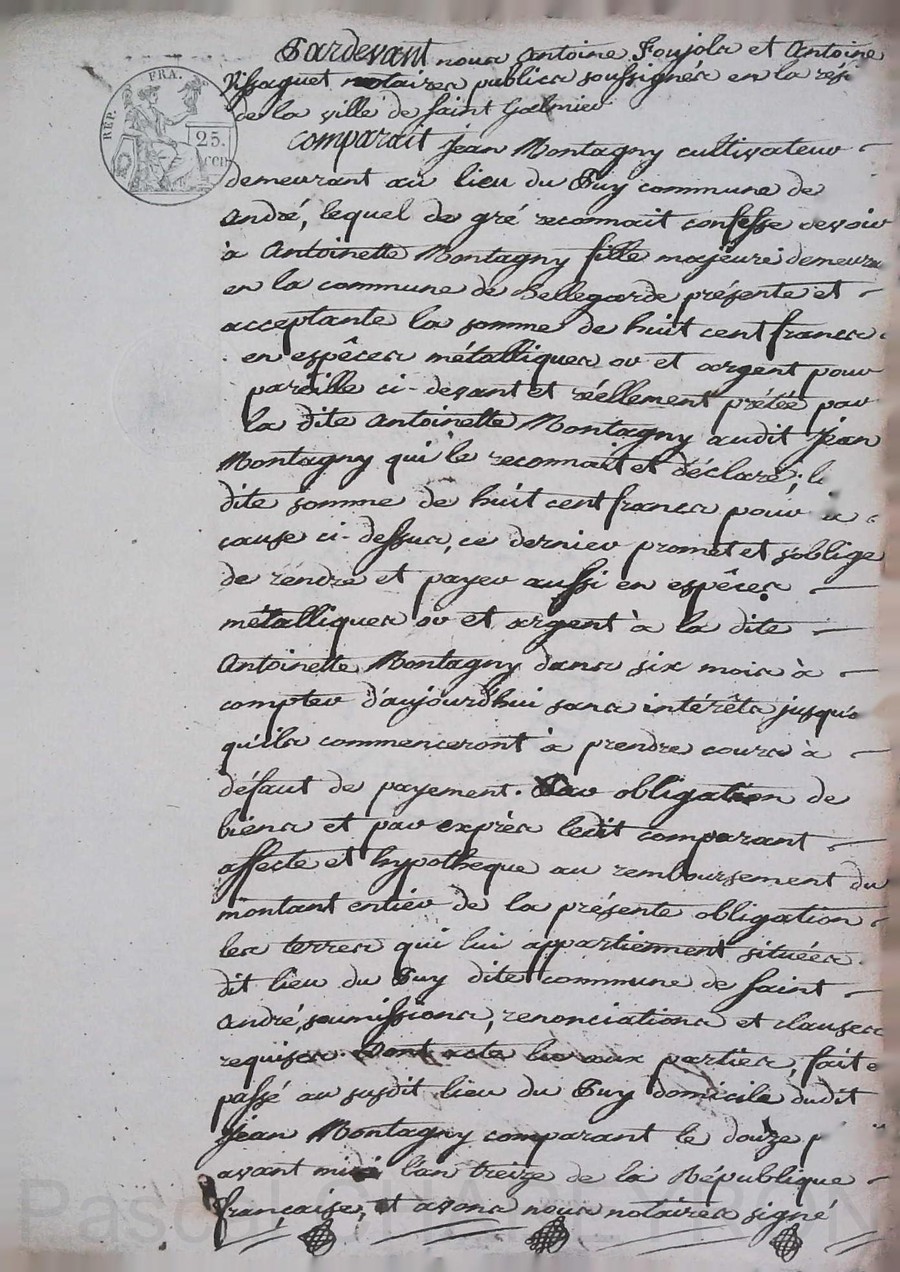 REP. FRA.
25.
CEN
Pardevant nous Antoine Foujols et Antoine
Vissaguet notaires publics soussignés en la rési
de la ville de saint Galmier
Comparait Jean Montagny cultivateur
demeurant au lieu du Puy commune de
André, lequel de gré reconnait confesse devoir
à Antoinette Montagny fille majeure demeura
en la commune de Bellegarde présente et
acceptante la somme de huit cent francs
en espêces métalliques or et argent pour
pareille ci-devant et réellement prétée par
la dite Antoinette Montagny audit Jean
Montagny qui le reconnait et déclare; la
dite somme de huit cent francs pour la
cause ci-dessus, ce dernier promet et s'oblige
de rendre et payer aussi en espêces
métalliques or et argent à la dite
Antoinette Montagny dans six mois à
compter d'aujourd'hui sans intérêts jusqu'à
qu'ils commenceront à prendre cours à
défaut de payement. Par obligation de
biens et par exprès ledit comparant
affecte et hypotheque au remboursement du
montant entier de la présente obligation
les terres qui lui appartiennent situées
dit lieu du Puy dite commune de saint
André, soumissions, renonciations et clauses
requises. Dont acte lu aux parties, fait e
passé au susdit lieu du Puy domicile dudit
Jean Montagny comparant le douze p
avant midi l'an treize de la République
française, et avons nous notaires signé
Pascal CHAMEYRON